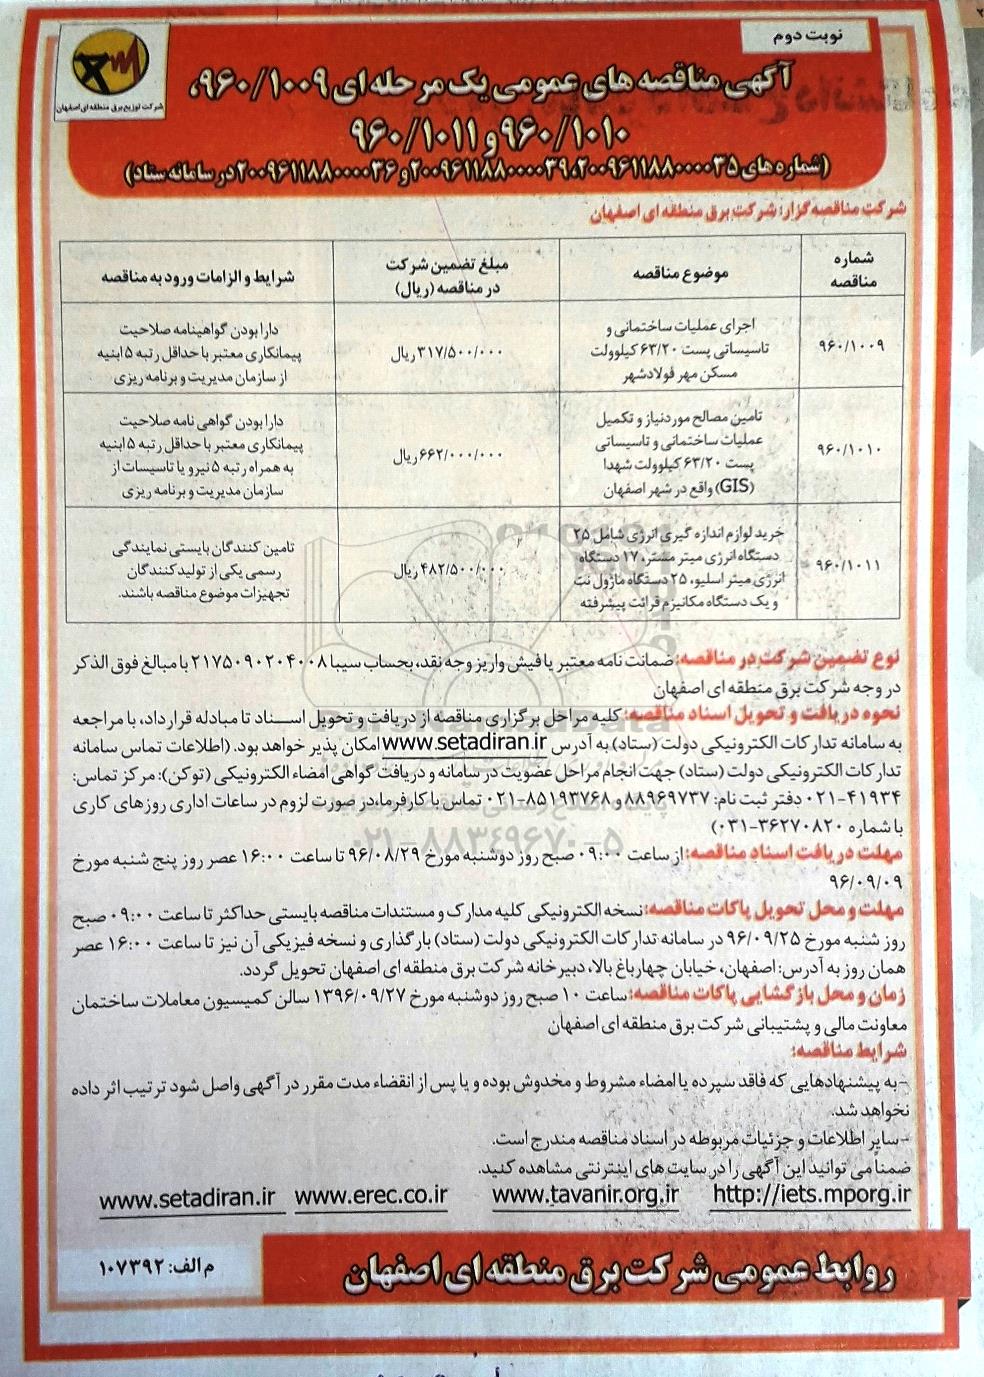 نوبت دوم
شرکت توزیع برق منطقه ای اصفهان
آگهی مناقصه های عمومی یک مرحله ای ۹۶۰/۱۰۰۹،
۹۶۰/۱۰۱۰ و ۹۶۰/۱۰۱۱
(شماره های ۲۰۰۹۶۱۱۸۸۰۰۰۰۳۵، ۲۰۰۹۶۱۱۸۸۰۰۰۰۳۹ و ۲۰۰۹۶۱۱۸۸۰۰۰۰۳۶ در سامانه ستاد)
شرکت مناقصه گزار: شرکت برق منطقه ای اصفهان
شماره مناقصه
موضوع مناقصه
مبلغ تضمین شرکت در مناقصه (ریال)
شرایط و الزامات ورود به مناقصه
۹۶۰/۱۰۰۹
اجرای عملیات ساختمانی و
تاسیساتی پست ۶۳/۲۰ کیلوولت
مسکن مهر فولادشهر
۳۱۷/۵۰۰/۰۰۰ ریال
دارا بودن گواهینامه صلاحیت
پیمانکاری معتبر با حداقل رتبه ۵ ابنیه
از سازمان مدیریت و برنامه ریزی
۹۶۰/۱۰۱۰
تامین مصالح مورد نیاز و تکمیل
عملیات ساختمانی و تاسیساتی
پست ۶۳/۲۰ کیلوولت شهدا
(GIS) واقع در شهر اصفهان
۶۶۲/۰۰۰/۰۰۰ ریال
دارا بودن گواهی نامه صلاحیت
پیمانکاری معتبر با حداقل رتبه ۵ ابنیه
به همراه رتبه ۵ نیرو یا تاسیسات از
سازمان مدیریت و برنامه ریزی
۹۶۰/۱۰۱۱
خرید لوازم اندازه گیری انرژی شامل ۲۵
دستگاه انرژی میتر مستر، ۱۷ دستگاه
انرژی میتر اسلیو، ۲۵ دستگاه ماژول نت
و یک دستگاه مکانیزم قرائت پیشرفته
۴۸۲/۵۰۰/۰۰۰ ریال
تامین کنندگان بایستی نمایندگی
رسمی یکی از تولیدکنندگان
تجهیزات موضوع مناقصه باشند.
نوع تضمین شرکت در مناقصه: ضمانت نامه معتبر یا فیش واریز وجه نقد، بحساب سیبا ۲۱۷۵۰۹۰۲۰۴۰۰۸ با مبالغ فوق الذکر
در وجه شرکت برق منطقه ای اصفهان
نحوه دریافت و تحویل اسناد مناقصه: کلیه مراحل برگزاری مناقصه از دریافت و تحویل اسناد تا مبادله قرارداد، با مراجعه
به سامانه تدارکات الکترونیکی دولت (ستاد) به آدرس www.setadiran.ir امکان پذیر خواهد بود. (اطلاعات تماس سامانه
تدارکات الکترونیکی دولت (ستاد) جهت انجام مراحل عضویت در سامانه و دریافت گواهی امضاء الکترونیکی (توکن): مرکز تماس:
۰۲۱-۴۱۹۳۴ دفتر ثبت نام: ۸۸۹۶۹۷۳۷ و ۰۲۱-۸۵۱۹۳۷۶۸ تماس با کارفرما، در صورت لزوم در ساعات اداری روزهای کاری
با شماره ۰۳۱-۳۶۲۷۰۸۲۰)
مهلت دریافت اسناد مناقصه: از ساعت ۰۹:۰۰ صبح روز دوشنبه مورخ ۹۶/۰۸/۲۹ تا ساعت ۱۶:۰۰ عصر روز پنج شنبه مورخ
۹۶/۰۹/۰۹
مهلت و محل تحویل پاکات مناقصه: نسخه الکترونیکی کلیه مدارک و مستندات مناقصه بایستی حداکثر تا ساعت ۰۹:۰۰ صبح
روز شنبه مورخ ۹۶/۰۹/۲۵ در سامانه تدارکات الکترونیکی دولت (ستاد) بارگذاری و نسخه فیزیکی آن نیز تا ساعت ۱۶:۰۰ عصر
همان روز به آدرس: اصفهان، خیابان چهارباغ بالا، دبیرخانه شرکت برق منطقه ای اصفهان تحویل گردد.
زمان و محل بازگشایی پاکات مناقصه: ساعت ۱۰ صبح روز دوشنبه مورخ ۱۳۹۶/۰۹/۲۷ سالن کمیسیون معاملات ساختمان
معاونت مالی و پشتیبانی شرکت برق منطقه ای اصفهان
شرایط مناقصه:
-به پیشنهادهایی که فاقد سپرده یا امضاء مشروط و مخدوش بوده و یا پس از انقضاء مدت مقرر در آگهی واصل شود ترتیب اثر داده
نخواهد شد.
-سایر اطلاعات و جزئیات مربوطه در اسناد مناقصه مندرج است.
ضمناً می توانید این آگهی را در سایت های اینترنتی مشاهده کنید.
http://iets.mporg.ir www.tavanir.org.ir www.erec.co.ir www.setadiran.ir
روابط عمومی شرکت برق منطقه ای اصفهان
م الف: ۱۰۷۳۹۲
ParsNamadData
۰۲۱-۸۸۳۴۹۶۷۰-۵